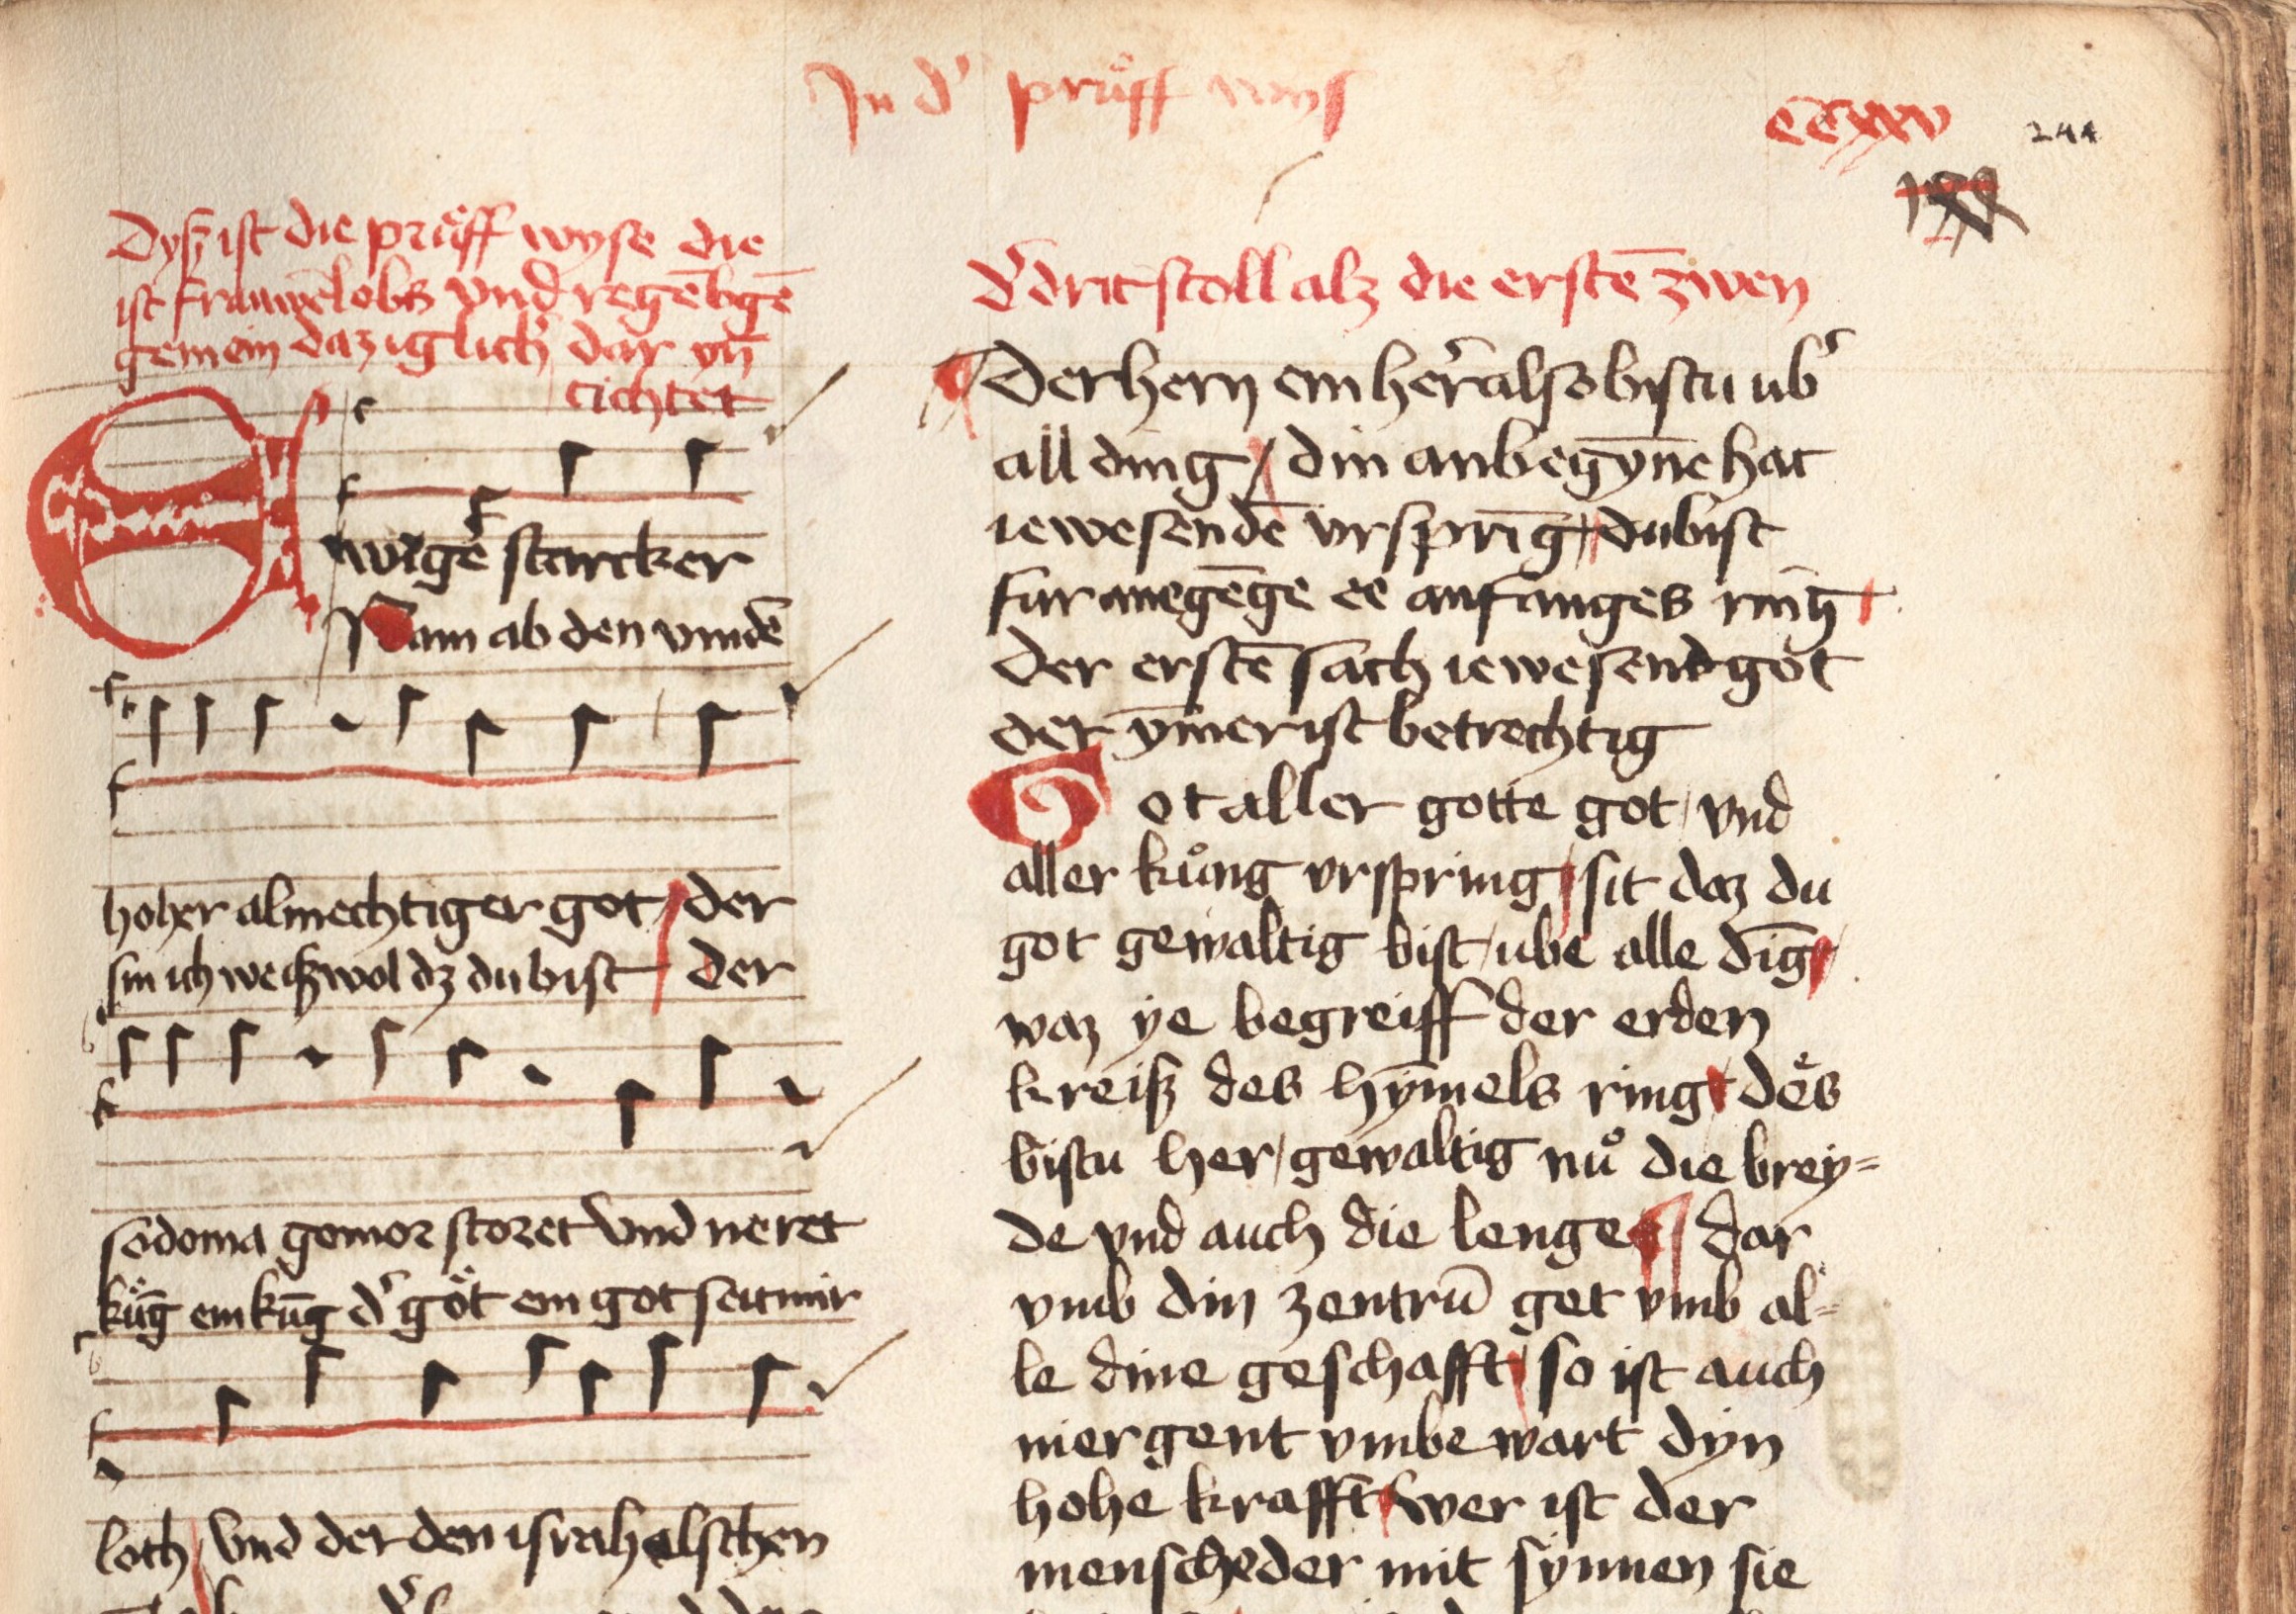 In d' prüff wyß
ccxxv 244
Dyß ist die prüff wyse die
ist frauwēlobs vnd regēbgē
gemein daz iglich' dar yn̄
tichtet
Ewigē starcker
Nam ab den vindē
hoher almechtiger got / der
sin ich weiß wol dz du bist / der
sodoma gomor storet vnd neret
küg̅ ein kūg d' göt ein got seit mir
loth / vnd der den israhelschen
d' drit stoll alz die erstē zwen
Der hern ein her' also bistu ub'
all ding / din anbegȳne hat
iewesendē vrsprīg / du bist
fur anegēge ee anfanges rinḡ
der erstē sach iewesend got
der ȳmer ist betrechtig
Got aller gotte got / vnd
aller kůng vrspring / sit daz du
got gewaltig bist / ube alle dīg
waz ye begreiff der erden
kreiß des hȳmels ring / des
bistu her / gewaltig nů die brey=
de vnd auch die lenge / dar
vmb din zentrū get vmb al=
le dine geschafft / so ist auch
niergent vmbewart dyn
hohe krafft / wer ist der
mensche der mit synnen sie